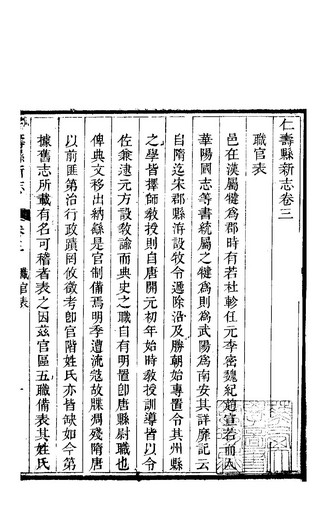 仁壽縣新志卷三
職官表
邑在漢屬犍為郡時有若杜軫任元李密魏紀趙宣若而人
華陽國志等書統屬之犍為則為武陽為南安其詳靡記云
自隋迄宋郡縣洊設牧令遞除沿及勝朝始專置令其州縣
之學皆擇師教授則自唐開元初年始時教授訓導皆以令
佐兼逮元方設教諭而典史之職自有明置卽唐縣尉職也
俾典文移出納繇是官制備焉明季遭流寇故牒凋殘隋唐
以前匪第治行政蹟罔攸徵考卽官階姓氏亦皆缺如今第
據舊志所載有名可稽者表之因茲官區五職備表其姓氏
壽縣新志
卷三
職官表
一